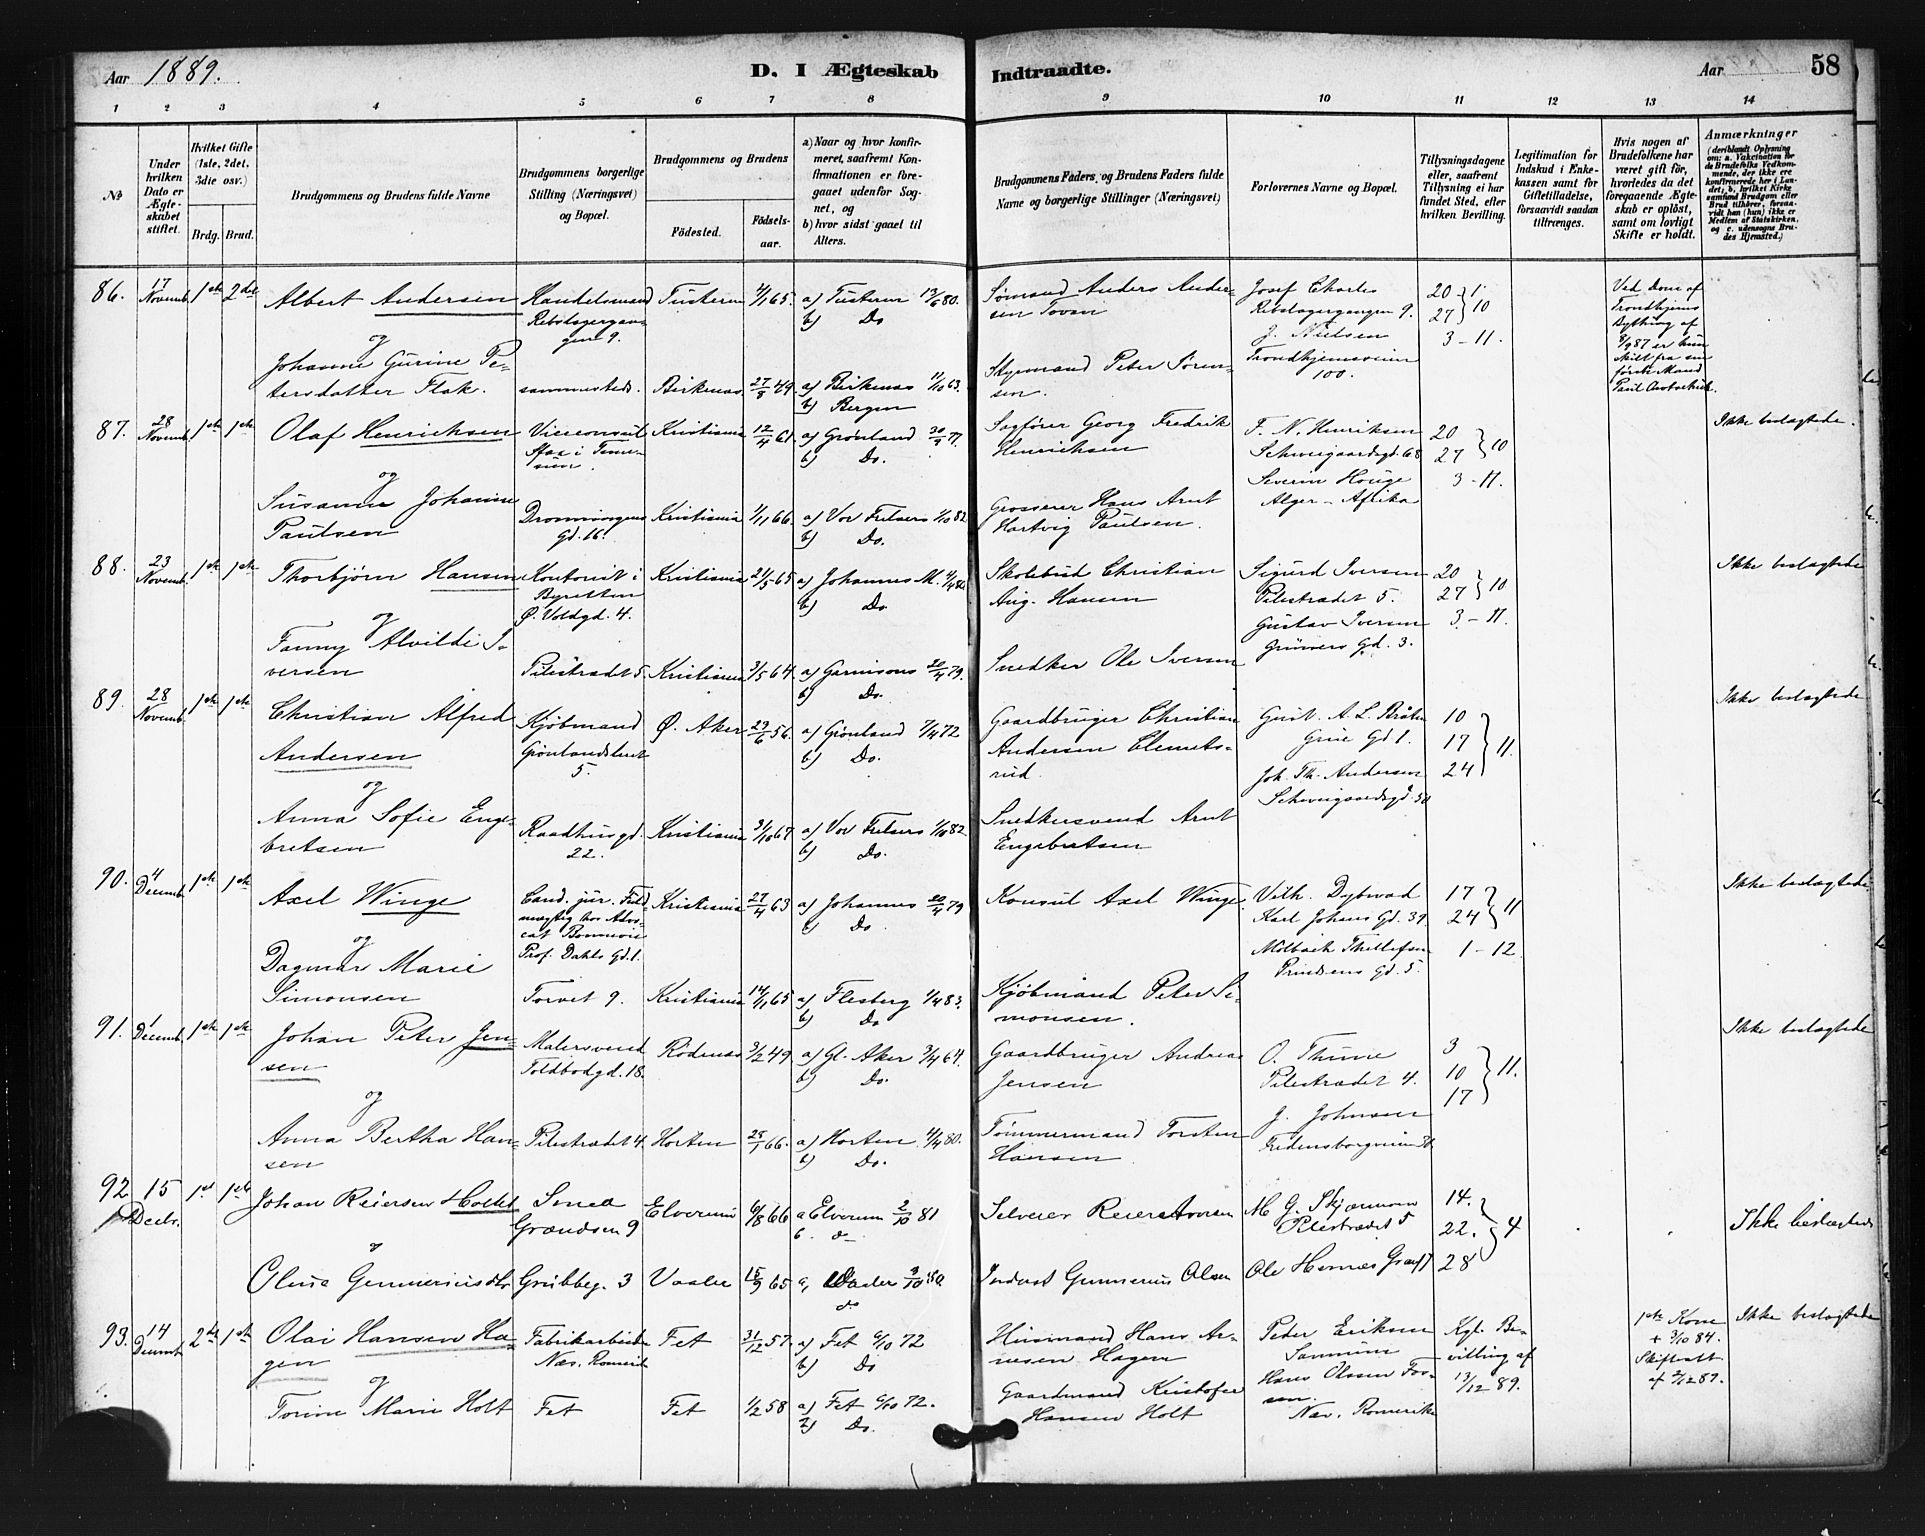 Aar 1889.
D. I Ægteskab
Indtraadte.
Aar
58
1 2 3 4 5 6 7 8 9 10 11 12 13 14
No
Under hvilken Dato er Ægteskabet stiftet.
Hvilket Gifte (1ste, 2det, 3die osv.)
Brdg. Brud.
Brudgommens og Brudens fulde Navne
Brudgommens borgerlige Stilling (Næringsvei) og Bopæl.
Brudgommens og Brudens
Fødested.
Fødselsaar.
a) Naar og hvor konfirmeret, saafremt Konfirmationen er foregaaet udenfor Sognet, og
b) hvor sidst gaaet til Alters.
Brudgommens Faders og Brudens Faders fulde Navne og borgerlige Stillinger (Næringsvei)
Forlovernes Navne og Bopæl.
Tillysningsdagene eller, saafremt Tillysning ei har fundet Sted, efter hvilken Bevilling.
Legitimation for Indskud i Enkekassen samt for Giftetilladelse, forsaavidt saadan tiltrænges.
Hvis nogen af Brudefolkene har været gift før, hvorledes da det foregaaende Ægteskab er opløst, samt om lovligt Skifte er holdt.
Anmærkninger
86. 17 Novemb. 1ste 2det
Albert Andersen Handelsmand Tusteren 4/1 65. a) Tusteren 13/6 80.
Rebslagergangen 9. b) Do
Sømand Anders Andersen Tovan
Josef Charles Rebslagergangen 9.
J. Nielsen Trondhjemsveien 100.
20 27 } 10
3 - 11.
Ved Dom af Trondhjems Bything af 8/9 87 er hun skilt fra sin første Mand Paul
og
Johanne Gurine Petersdatter Flak. sammesteds. Birkenæs 27/8 49. a) Birkenæs 11/10 63.
b) Bergen
Styrmand Peter Sørensen.
87. 28 Novemb. 1ste 1ste
Olaf Henrichsen Viceconsul Kristiania 12/4 61. a) Grønland 30/9 77.
Sfax i Tunesien. b) Do.
Sagfører Georg Fredrik Henrichsen
F. N. Henriksen Schweigaardsgd. 68
Severin Houge Alger - Afrika
20 27 } 10
3 - 11.
Ikke beslægtede.
og
Susanne Johanne Paulsen Dronningens Gd. 16. Kristiania 1/11 66. a) Vor Frelsers 1/10 82.
b) Do.
Grosserer Hans Arnt Hartvig Paulsen.
88. 23 Novemb. 1ste 1ste
Thorbjørn Hansen Kontorist i Byretten Ø. Voldgd. 4. Kristiania 21/5 65 a) Johannes M. 4/4 80
b) Do
Skolebud Christian Aug. Hansen
Sigurd Iversen Pilestrædet 5.
Gustav Iversen Grüners Gd. 3.
20 27 } 10
3. - 11.
Ikke beslægtede
og
Fanny Alvilde Iversen Pilestrædet 5. Kristiania 3/5 64. a) Garnisons 20/4 79.
b) Do.
Snedker Ole Iversen
89. 28 Novemb. 1ste 1ste
Christian Alfred Andersen Kjøbmand Grønlandsleret 5. Ø. Aker 29/6 56. a) Grønland 7/4 72
b) Do.
Gaardbruger Christian Andersen Clemetsrud.
Gust. A. L. Bråten Grüne Gd 1.
Joh. Th. Andersen Schweigaardsgd. 50
10 17 24 } 11.
Ikke beslægtede
og
Anna Sofie Engebretsen Raadhusgd. 22. Kristiania 31/10 67. a) Vor Frelsers 1/10 82.
b) Do.
Snedkersvend Arnt Engebretsen
90. 4 Decemb. 1ste 1ste
Axel Winge Cand. jur. Fuldmægtig hos Advocat Bonnevie Prof. Dahls Gd. 1. Kristiania 27/4 63 a) Johannes 20/4 79
b) Do.
Konsul Axel Winge.
Vilh. Dybwad Karl Johans Gd. 37
Milbach Thellefsen Prindsens Gd. 5.
17 24 } 11
1 - 12.
Ikke beslægtede
og
Dagmar Marie Simonsen Torvet 9. Kristiania 14/1 65 a) Flesberg 1/4 83.
b) Do
Kjøbmand Peter Simonsen.
91. 1 Decemb. 1ste 1ste
Johan Peter Jensen Malersvend Toldbodgd. 18. Rødenæs 3/2 49. a) Gl. Aker 3/4 64.
b) Do.
Gaardbruger Andreas Jensen
O. Thune Pilestrædet 4.
J. Johnsen Fredensborgveien
3 10 17 } 11.
Ikke beslægtede
og
Anna Bertha Hansen Pilestrædet 4. Horten 25/1 66. a) Horten 4/4 80.
b) Do.
Tømmermand Torsten Hansen
92 15 Decbr. 1st 1ste
Johan Reiersen Holtet Smed Grændsen 9 Elverum 6/8 66 a Elverum 2/10 81
b. do
Selveier Reier Iversen
M. G. Skjærmoen Pilestrædet 5
14. 22. 28 } 4
Ikke beslægtede
og
Oline Gunneriusdtr Grubbeg. 3 Vaaler 15/9 65 a, Vaaler 3/10 80.
do
Inderst Gunnerius Olsen
Ole Hernæs
93. 14 Decemb. 2det 1ste
Olai Hansen Hagen Fabrikarbeider Næs. Romerike Fet 31/12 57. a) Fet 6/10 72
b) Do
Husmand Hans Arnesen Hagen
Peder Eriksen Sammen
Hans Olsen Fossen. Næs. Romerike
Kgl. Bevilling af 13/12 89.
1ste Kone + 3/10 84. Skifteatt. af 2/12 89.
Ikke beslægtede
og
Torine Marie Holt Fet Fet 1/2 58 a) Fet 6/10 72.
b) Do.
Gaardmand Kristofer Hansen Holt